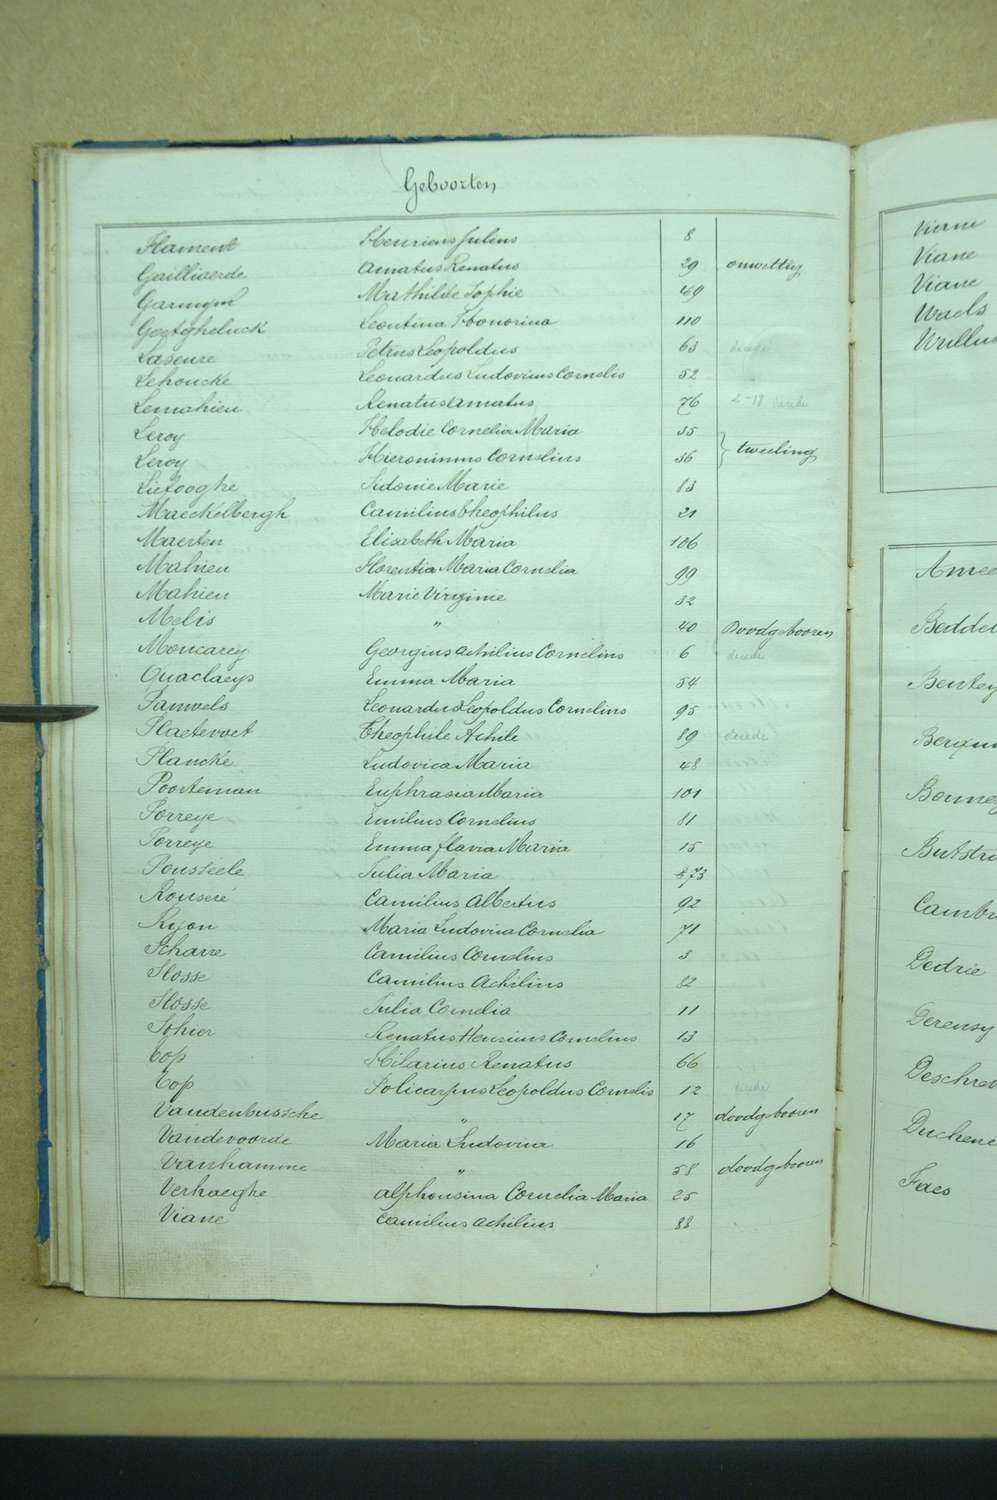 Geboorten
Flament Henricus Julius 8
Gailliaerde Amatus Renatus 29 onwettig
Garmyn Mathilde Sophie 49
Goetgheluck Leontina Honorina 110
Laseure Petrus Leopoldus 63 decede
Lehoucke Leonardus Ludovicus Cornelis 52
Lemahieu Renatus Amatus 76 decede
Leroy Melodie Cornelia Maria 35
Leroy Hieronimus Cornelius 36 } tweeling
Lietooghe Sidonie Marie 83
Maeckelbergh Camilius Theophilus 21
Maerten Elisabeth Maria 106
Mahieu Florentia Maria Cornelia 99
Mahieu Marie Virginie 32
Melis " 40 Doodgebooren
Moncarey Georgius Achilius Cornelius 6 decede
Quaclaeys Emma Maria 54
Pauwels Leonardus Leopoldus Cornelius 95
Plaetevoet Theophile Achile 89 decede
Planché Ludovica Maria 48
Poorteman Euphrasia Maria 101
Porreye Emilius Cornelius 81
Porreye Emma flavia Maria 15
Pousseele Julia Maria 73
Rouseré Camilius Albertus 92
Ryon Maria Ludovica Cornelia 71
Scharre Camilius Cornelius 3
Slosse Camilius Achilius 82
Slosse Julia Cornelia 11
Sohier Renatus Henricus Cornelius 13
Top Hilarius Renatus 66
Top Policarpus Leopoldus Cornelis 12 decede
Vandenbussche " 17 doodgebooren
Vandevoorde Maria Ludovica 16
Vanhamme " 58 doodgebooren
Verhaeghe Alphonsina Cornelia Maria 25
Viane Camilius Achilius 88
Viane
Viane
Viane
Waels
Berqui
Cambr
Dedrie
Deschre
Duchene
Faes